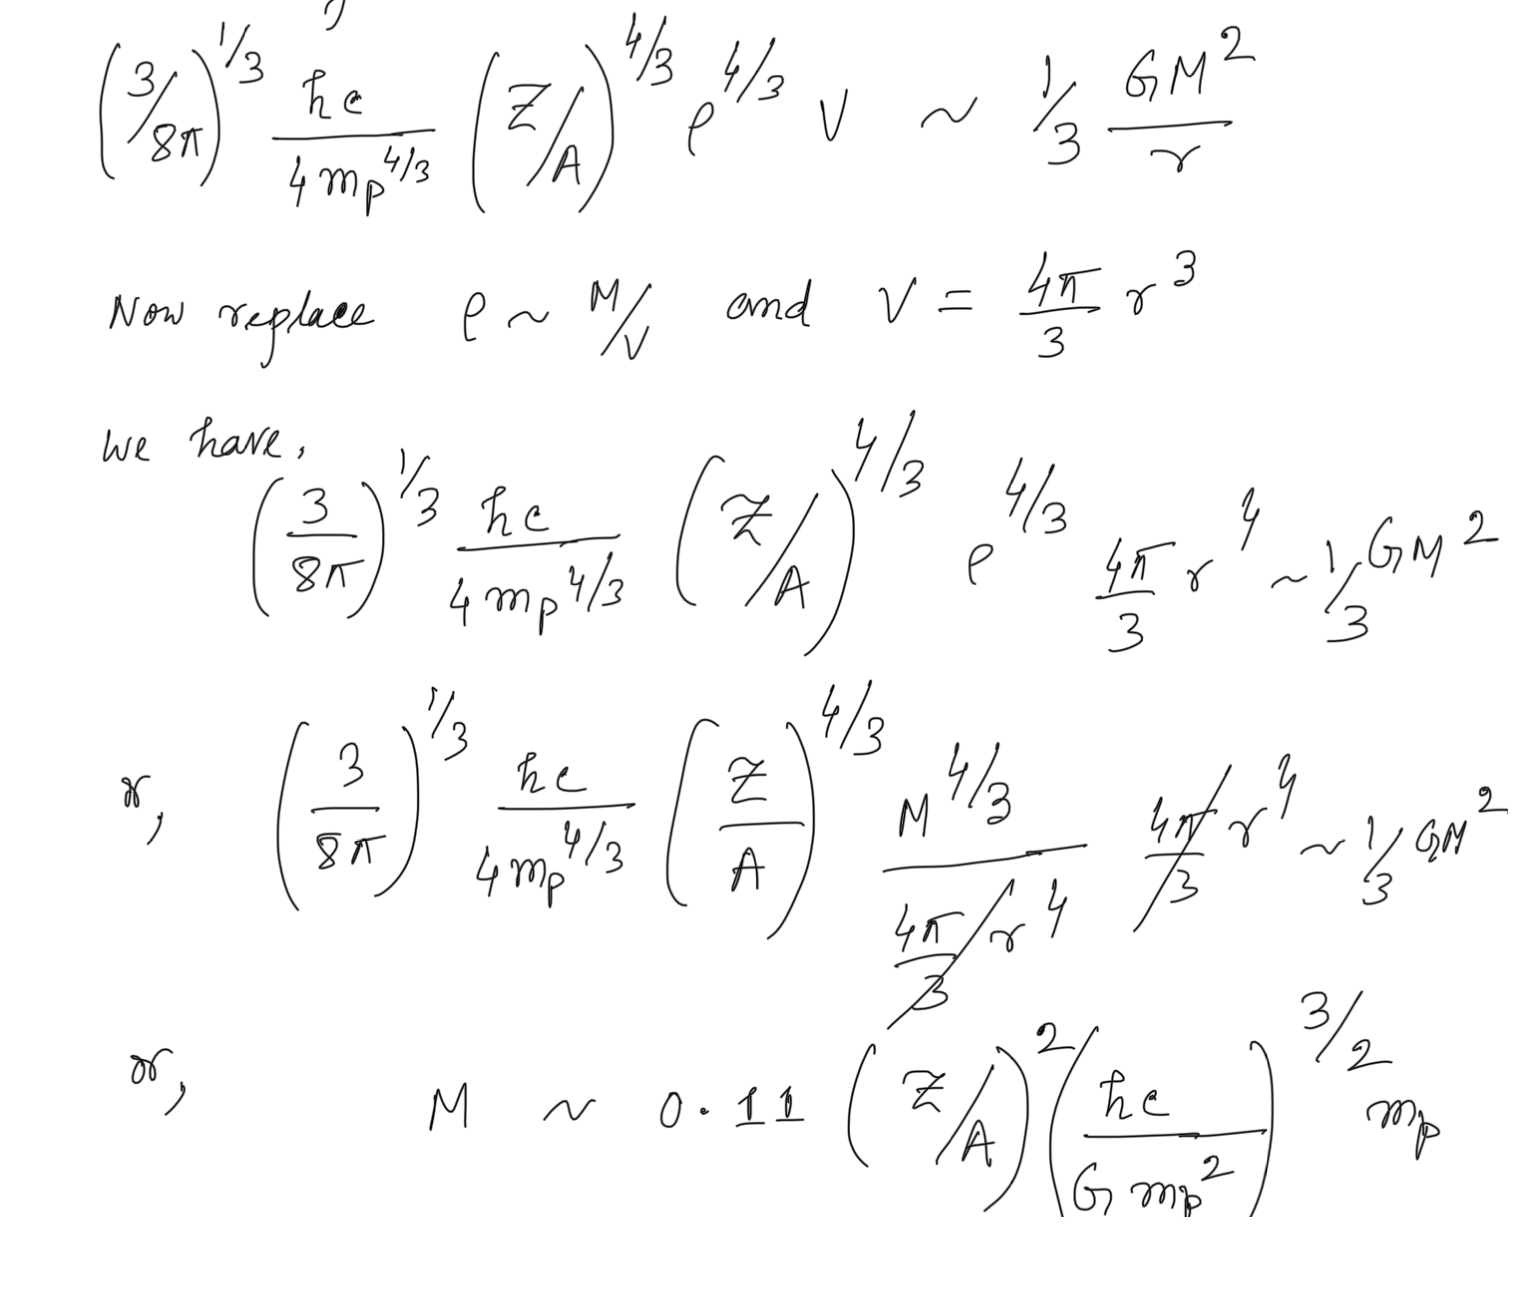 (3/8π)^{1/3} ℏc / 4m_p^{4/3} (Z/A)^{4/3} ρ^{4/3} V ~ 1/3 GM^2 / r
Now replace ρ ~ M/V and V = 4π/3 r^3
We have,
(3/8π)^{1/3} ℏc / 4m_p^{4/3} (Z/A)^{4/3} ρ^{4/3} 4π/3 r^4 ~ 1/3 GM^2
or, (3/8π)^{1/3} ℏc / 4m_p^{4/3} (Z/A)^{4/3} M^{4/3} / (4π/3 r^4) 4π/3 r^4 ~ 1/3 GM^2
or, M ~ 0.11 (Z/A)^2 (ℏc / G m_p^2)^{3/2} m_p